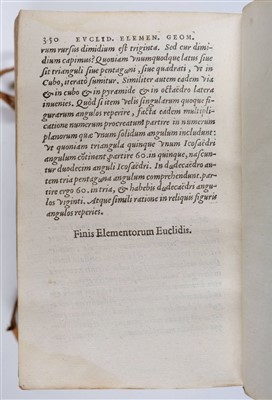 350 EVCLID. ELEMEN. GEOM.
rum rursus dimidium est triginta. Sed cur dimi-
dium capimus? Quoniam vnumquodque latus siue
sit trianguli siue pentagoni, siue quadrati, vt in
Cubo, iterato sumitur. Similiter autem eadem via
& in cubo & in pyramide & in octaëdro latera
inuenies. Quòd si item velis singularum quoque fi-
gurarum angulos reperire, facta eadem multipli-
catione numerum procreatum partire in numerum
planorum quæ vnum solidum angulum includunt:
vt quoniam triangula quinque vnum Icosaëdri
angulum cōtinent, partire 60. in quinque, nascun-
tur duodecim anguli Icosaëdri. In dodecaëdro au-
tem tria pentagona angulum comprehendunt, par-
tire ergo 60. in tria, & habebis dodecaëdri angu-
los viginti. Atque simili ratione in reliquis figuris
angulos reperies.
Finis Elementorum Euclidis.